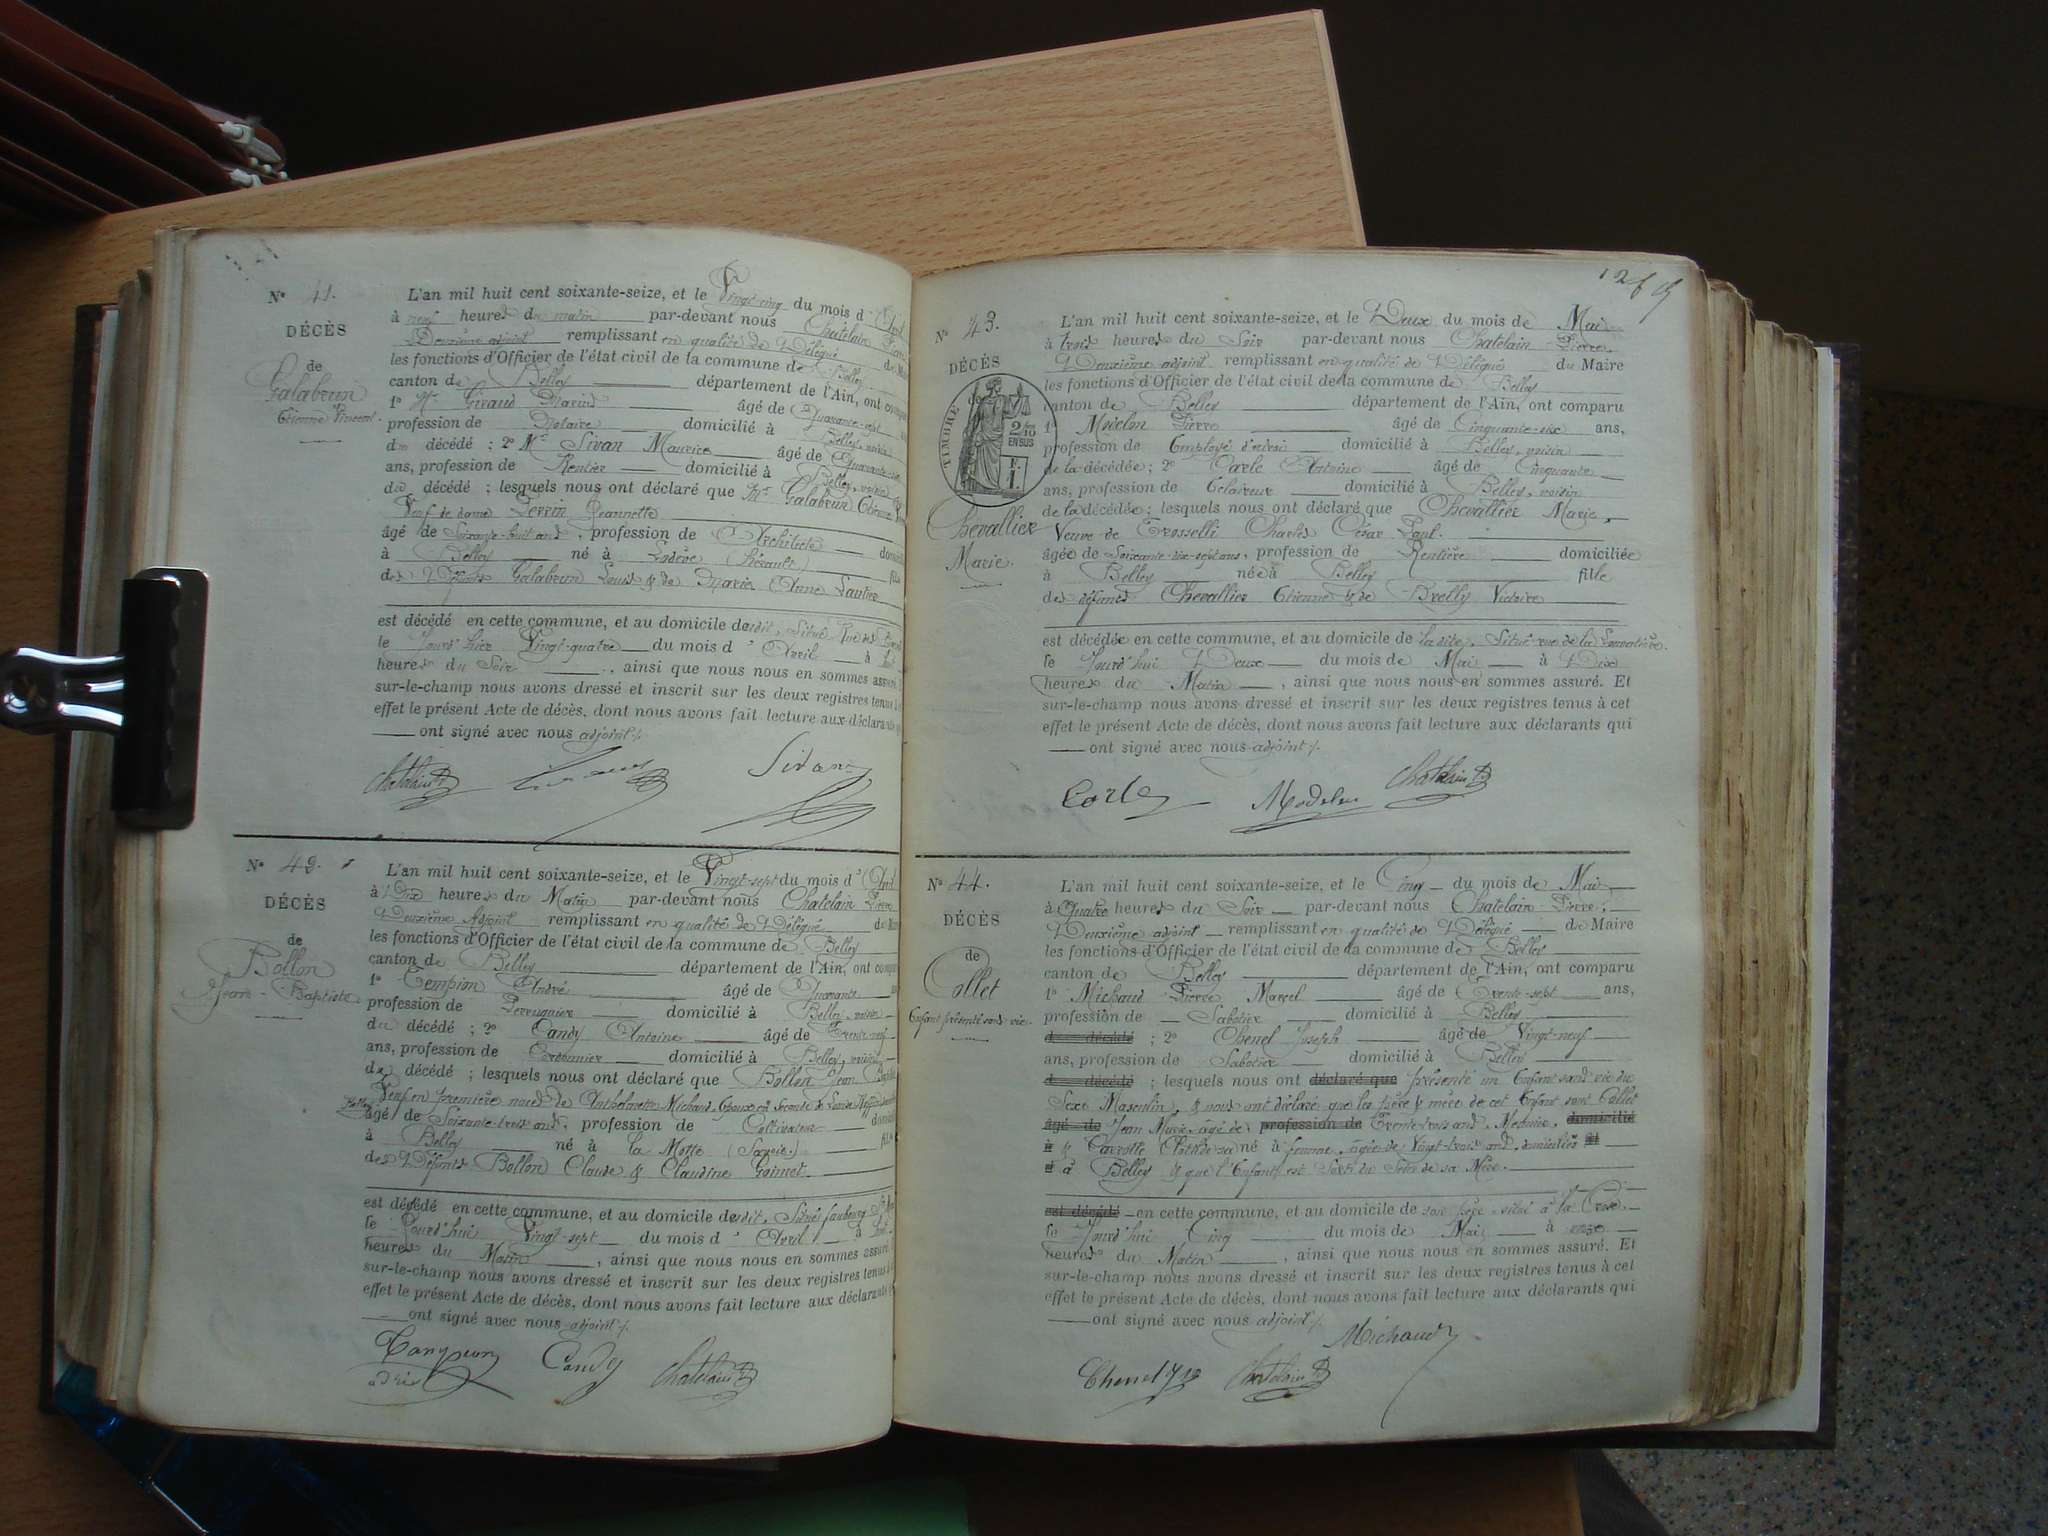 N° 41.
DÉCÈS
de
Galabrun
Etienne Vincent
L'an mil huit cent soixante-seize, et le Vingt-cinq du mois d'Avril
à neuf heures du matin par-devant nous Chatelain Pierre
Deuxième adjoint remplissant en qualité de Délégué du Maire
les fonctions d'Officier de l'état civil de la commune de Belley
canton de Belley département de l'Ain, ont compa
1° Mr Giraud Marius âgé de Quarante-sept
profession de Notaire domicilié à Belley, voisin
du décédé ; 2° Mr Sivan Maurice âgé de Quarante
ans, profession de Rentier domicilié à Belley, voisin
du décédé ; lesquels nous ont déclaré que Mr Galabrun Etienne
Veuf de dame Perrin Jeannette
âgé de Soixante-huit ans, profession de Architecte domici
à Belley né à Lodève (Hérault) fils
des Défunts Galabrun Louis & de Marie Anne Lautier
est décédé en cette commune, et au domicile dudit, Situé Rue des
le Jourd'hier Vingt-quatre du mois d'Avril à
heures du Soir, ainsi que nous nous en sommes assuré
sur-le-champ nous avons dressé et inscrit sur les deux registres tenus à
effet le présent Acte de décès, dont nous avons fait lecture aux déclarants
ont signé avec nous adjoint ./.
Chatelain Sivan
N° 42.
DÉCÈS
de
Bollon
Jean-Baptiste
L'an mil huit cent soixante-seize, et le Vingt-sept du mois d'Avril
à Dix heures du Matin par-devant nous Chatelain Pierre
Deuxième Adjoint remplissant en qualité de Délégué de Mai
les fonctions d'Officier de l'état civil de la commune de Belley
canton de Belley département de l'Ain, ont compa
1° Tempion André âgé de Quarante
profession de Perruquier domicilié à Belley, voisin
du décédé ; 2° Candy Antoine âgé de Trente-neuf
ans, profession de Cordonnier domicilié à Belley, voisin
du décédé ; lesquels nous ont déclaré que Bollon Jean Baptiste
Veuf en première noces de Anthelmette Michaud, Epoux en Seconde de Louise
âgé de Soixante-trois ans, profession de Cultivateur domici
à Belley né à la Motte (Savoie) fils
des Défunts Bollon Claude & Claudine Goinet
est décédé en cette commune, et au domicile dudit, Situé faubourg
le Jourd'hui Vingt-sept du mois d'Avril à
heures du Matin, ainsi que nous nous en sommes assuré
sur-le-champ nous avons dressé et inscrit sur les deux registres tenus à
effet le présent Acte de décès, dont nous avons fait lecture aux déclarants
ont signé avec nous adjoint ./.
Candy Chatelain
N° 43.
DÉCÈS
de
TIMBRE
2/10
EN SUS
Chevallier
Marie
L'an mil huit cent soixante-seize, et le Deux du mois de Mai
à trois heures du Soir par-devant nous Chatelain Pierre
Deuxième adjoint remplissant en qualité de Délégué du Maire
les fonctions d'Officier de l'état civil de la commune de Belley
canton de Belley département de l'Ain, ont comparu
1° Modelon Pierre âgé de Cinquante-six ans,
profession de Employé domicilié à Belley, voisin
de la décédée ; 2° Carle Antoine âgé de Cinquante
ans, profession de Eclaireur domicilié à Belley, voisin
de la décédée ; lesquels nous ont déclaré que Chevallier Marie,
Veuve de Trosselli Charles César Paul.
âgée de Soixante-dix-sept ans, profession de Rentière domiciliée
à Belley née à Belley fille
des défunts Chevallier Etienne & de Brelly Victoire
est décédée en cette commune, et au domicile de la dite, Situé rue de la
le Jourd'hui Deux du mois de Mai à Dix
heures du Matin, ainsi que nous nous en sommes assuré. Et
sur-le-champ nous avons dressé et inscrit sur les deux registres tenus à cet
effet le présent Acte de décès, dont nous avons fait lecture aux déclarants qui
ont signé avec nous adjoint ./.
Carle Chatelain
N° 44.
DÉCÈS
de
Collet
Enfant présenté sans vie.
L'an mil huit cent soixante-seize, et le Cinq du mois de Mai
à Quatre heures du Soir par-devant nous Chatelain Pierre,
Deuxième adjoint remplissant en qualité de Délégué de Maire
les fonctions d'Officier de l'état civil de la commune de Belley
canton de Belley département de l'Ain, ont comparu
1° Michaud Pierre Marcel âgé de Trente-sept ans,
profession de Sabotier domicilié à Belley
d décédé ; 2° Chenel Joseph âgé de Vingt-neuf
ans, profession de Sabotier domicilié à Belley
d décédé ; lesquels nous ont déclaré que présenté un Enfant sans vie du
Sexe Masculin, & nous ont déclaré que les père & mère de cet Enfant sont Collet
âgé de Jean Marie, âgé de profession de Trente-trois ans, Meunier, domicilié
à & Clotilde sa né à femme, âgée de Vingt-trois ans, domiciliés
à Belley & que l'Enfant est Sorti du Sein de sa Mère.
est décédé en cette commune, et au domicile de son père situé à la Croix.
le Jourd'hui Cinq du mois de Mai à onze
heures du Matin, ainsi que nous nous en sommes assuré. Et
sur-le-champ nous avons dressé et inscrit sur les deux registres tenus à cet
effet le présent Acte de décès, dont nous avons fait lecture aux déclarants qui
ont signé avec nous adjoint ./.
Michaud
Chenel Chatelain